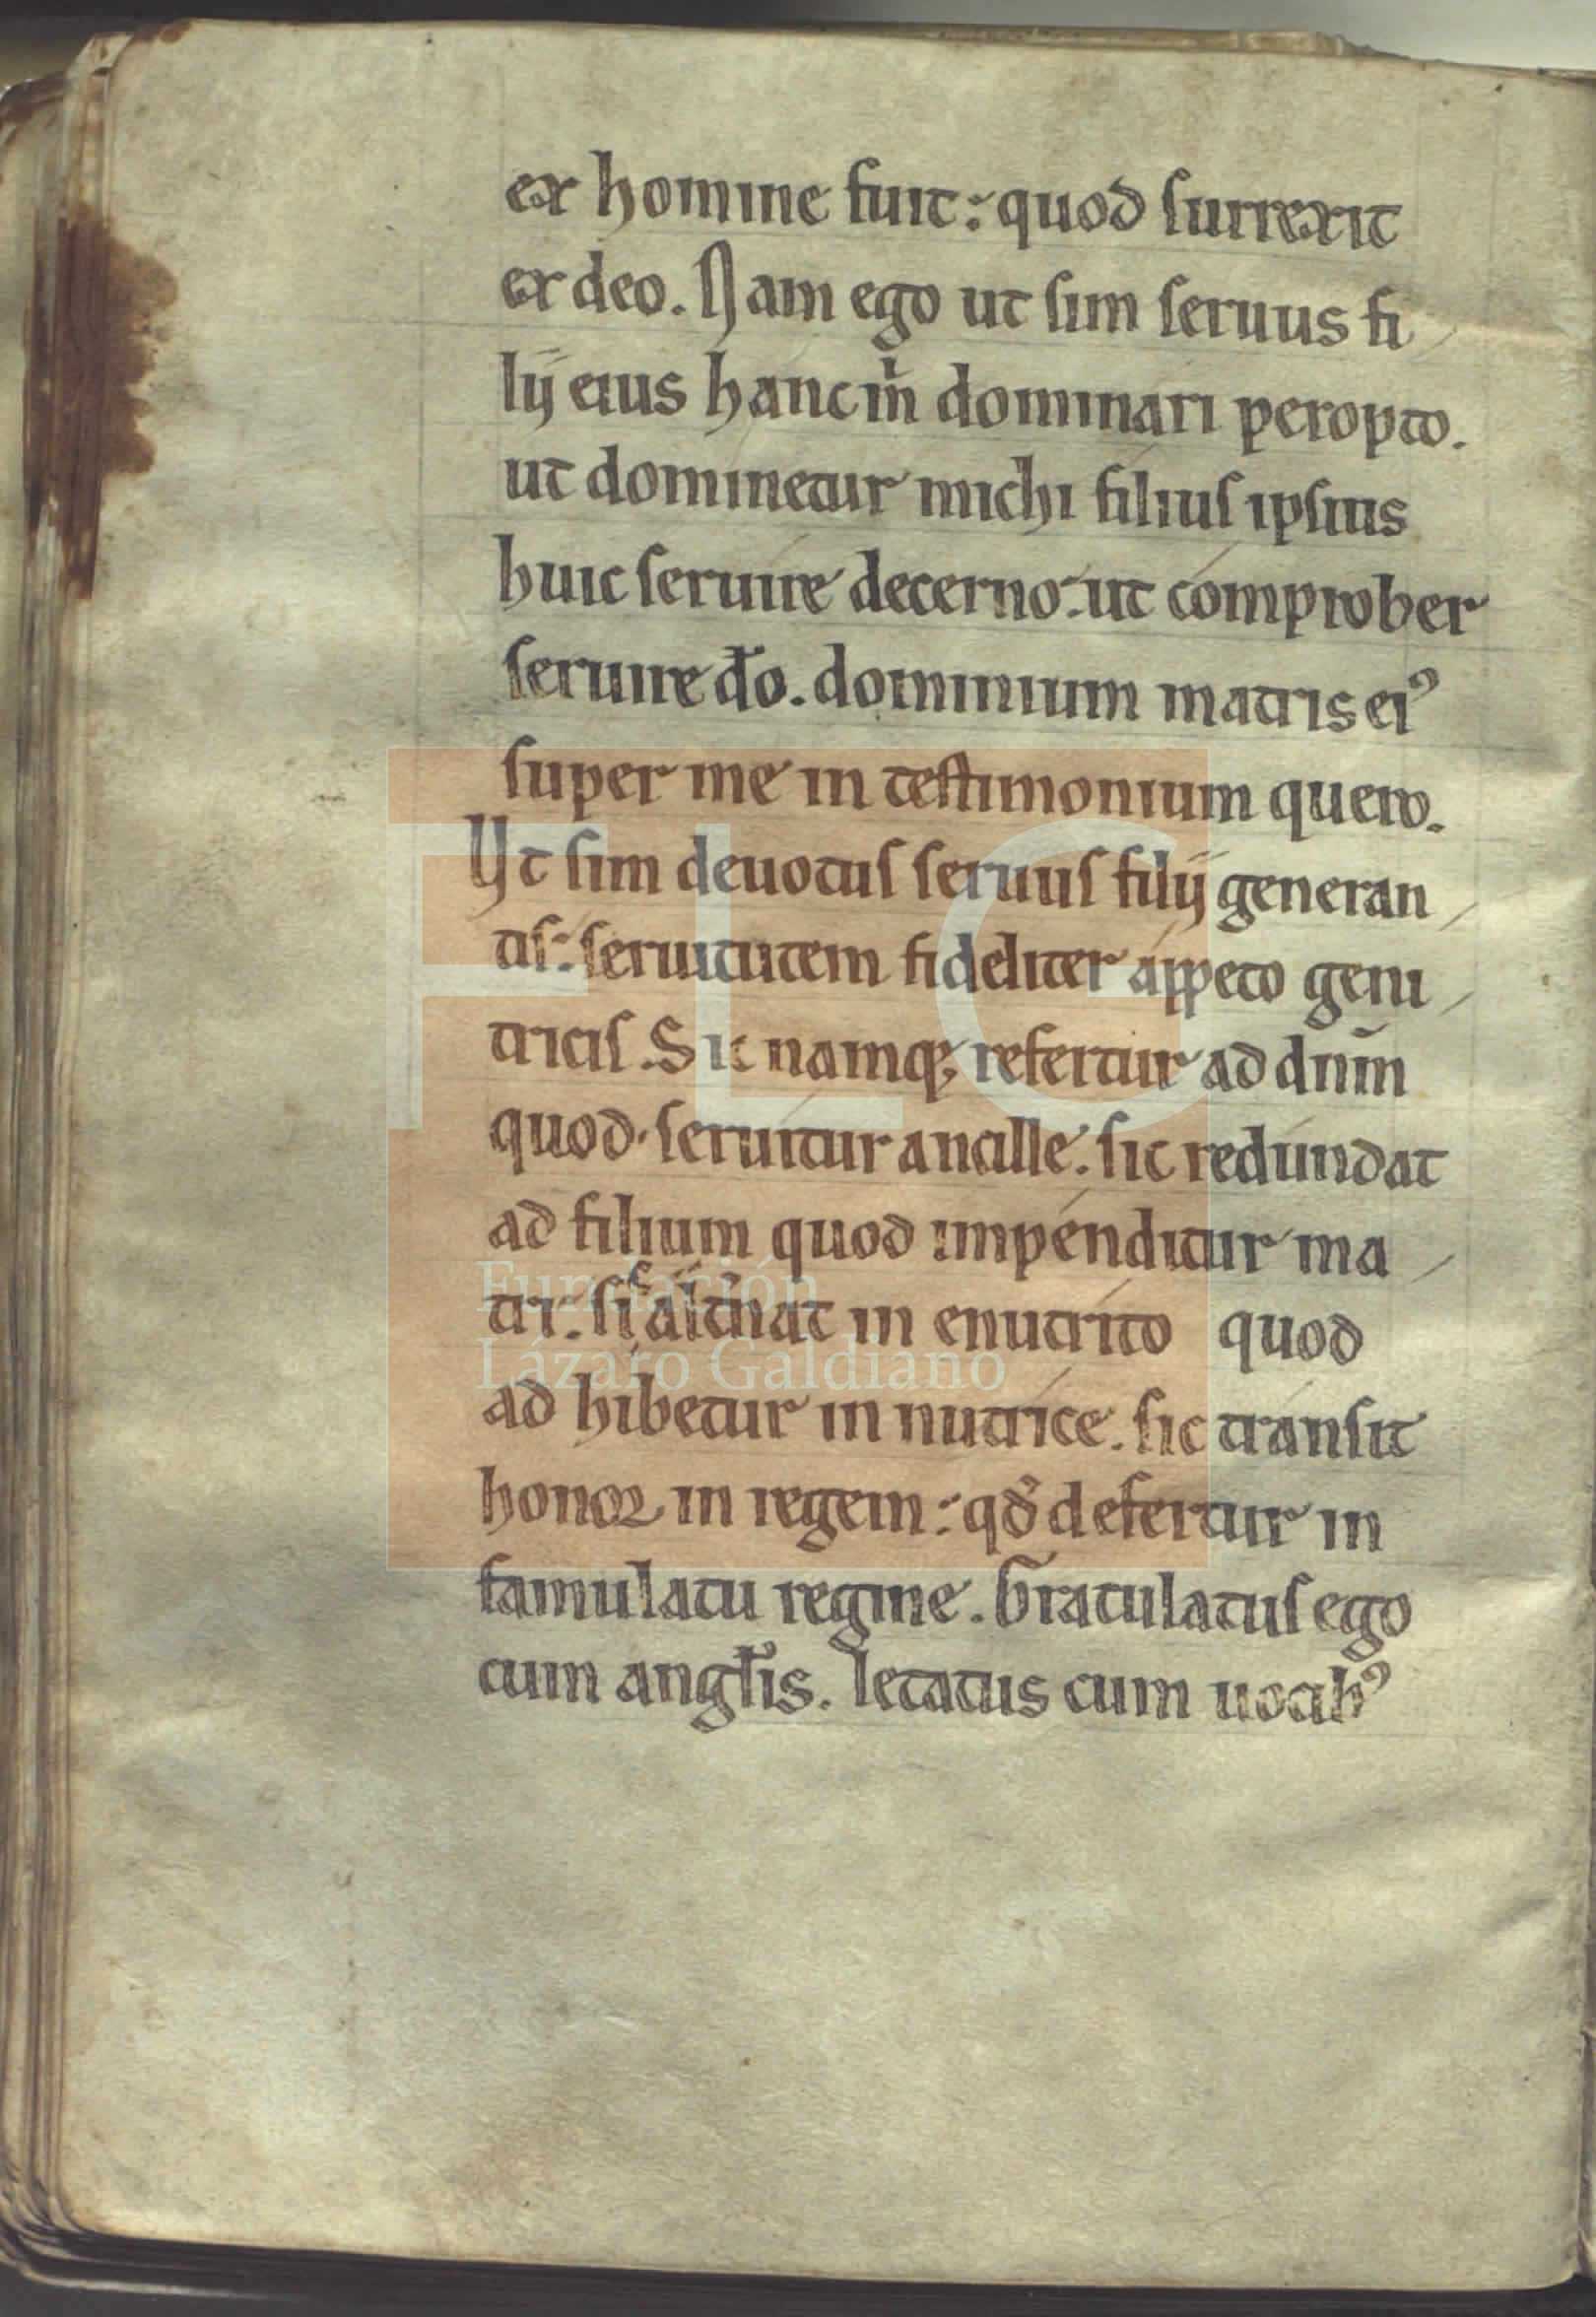 ex homine fuit: quod surrexit
ex deo. Nam ego ut sim seruus fi
lij eius hanc m̄ dominari peropto.
ut dominetur michi filius ipsius
huic seruire decerno: ut comprober
seruire d̄o. dominium matris ei⁹
super me in testimonium quero.
Ut sim deuotus seruus filij generan
tis: seruitutem fideliter appeto geni
tricis. Sic namq; refertur ad dn̄m
quod seruitur ancille. sic redundat
ad filium quod impenditur ma
tri. sic
in enutrito quod
ad hibetur in nutrice. sic transit
honor in regem: qd̄ defertur in
famulatu regine. Gratulatus ego
cum angl̄is. letatus cum
FLG
Fundación
Lázaro Galdiano